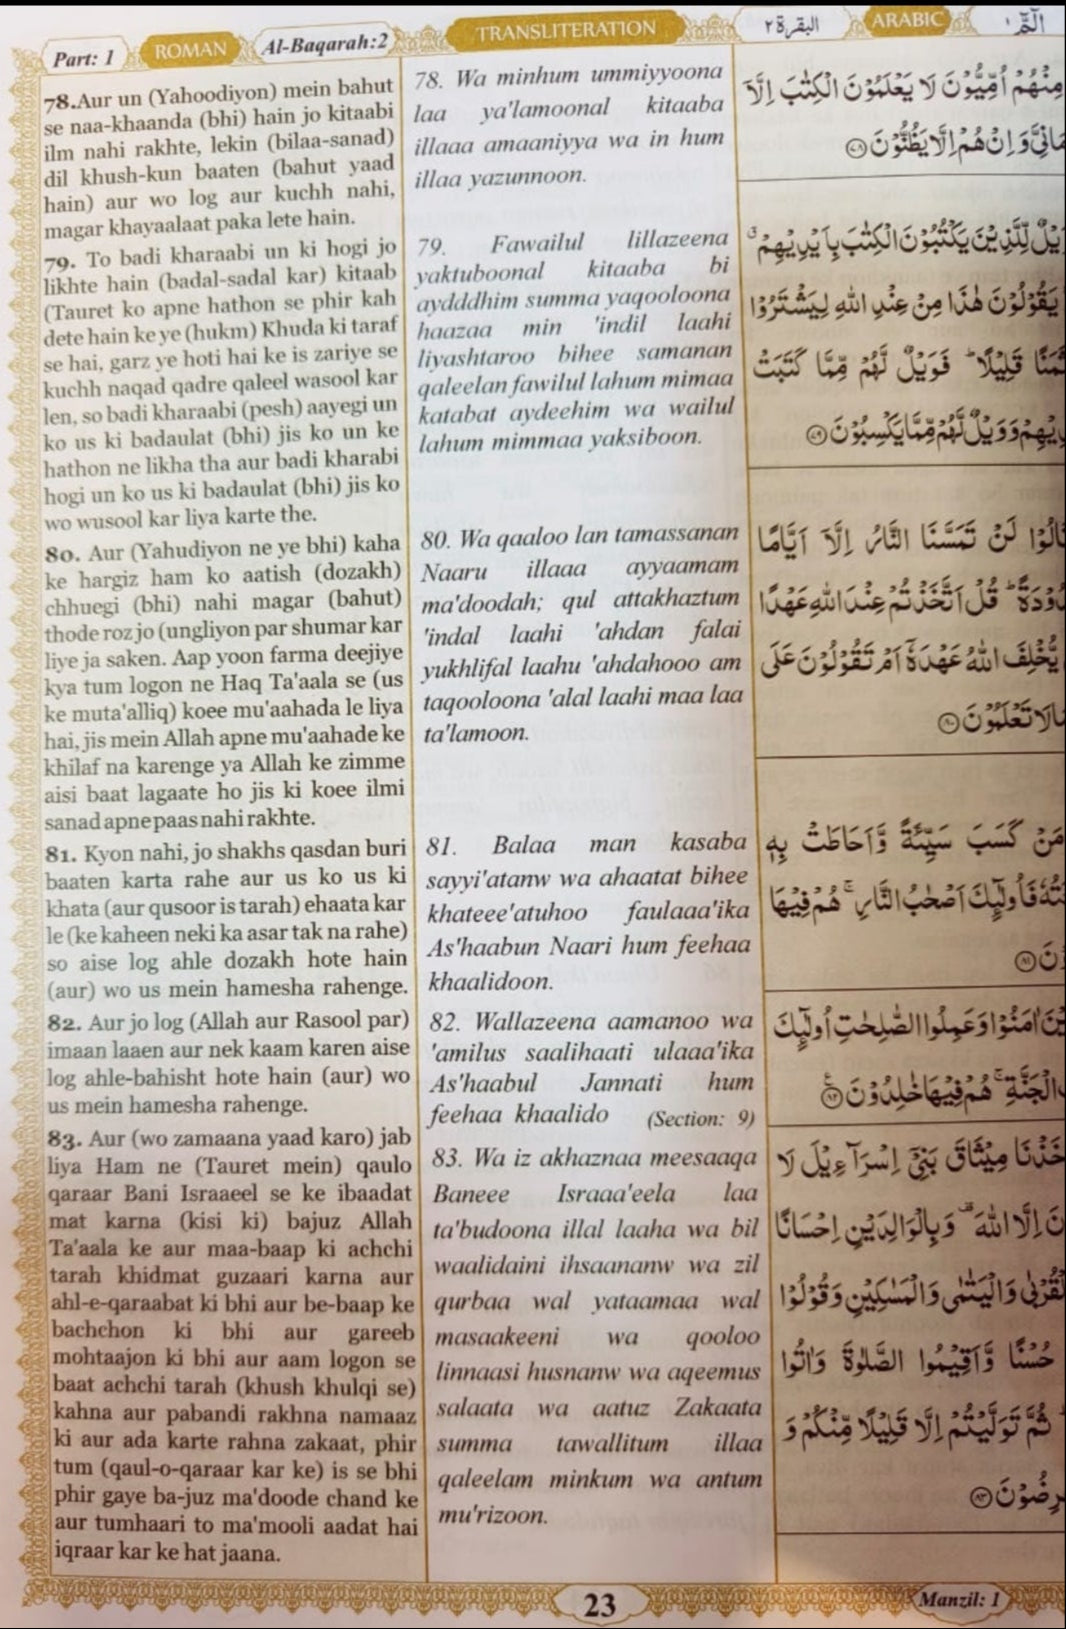 Part: 1
ROMAN
Al-Baqarah:2
TRANSLITERATION
البقرة ٢
ARABIC
الٓمّٓ ١
78.Aur un (Yahoodiyon) mein bahut
se naa-khaanda (bhi) hain jo kitaabi
ilm nahi rakhte, lekin (bilaa-sanad)
dil khush-kun baaten (bahut yaad
hain) aur wo log aur kuchh nahi,
magar khayaalaat paka lete hain.
79. To badi kharaabi un ki hogi jo
likhte hain (badal-sadal kar) kitaab
(Tauret ko apne hathon se phir kah
dete hain ke ye (hukm) Khuda ki taraf
se hai, garz ye hoti hai ke is zariye se
kuchh naqad qadre qaleel wasool kar
len, so badi kharaabi (pesh) aayegi un
ko us ki badaulat (bhi) jis ko un ke
hathon ne likha tha aur badi kharabi
hogi un ko us ki badaulat (bhi) jis ko
wo wusool kar liya karte the.
80. Aur (Yahudiyon ne ye bhi) kaha
ke hargiz ham ko aatish (dozakh)
chhuegi (bhi) nahi magar (bahut)
thode roz jo (ungliyon par shumar kar
liye ja saken. Aap yoon farma deejiye
kya tum logon ne Haq Ta'aala se (us
ke muta'alliq) koee mu'aahada le liya
hai, jis mein Allah apne mu'aahade ke
khilaf na karenge ya Allah ke zimme
aisi baat lagaate ho jis ki koee ilmi
sanad apne paas nahi rakhte.
81. Kyon nahi, jo shakhs qasdan buri
baaten karta rahe aur us ko us ki
khata (aur qusoor is tarah) ehaata kar
le (ke kaheen neki ka asar tak na rahe)
so aise log ahle dozakh hote hain
(aur) wo us mein hamesha rahenge.
82. Aur jo log (Allah aur Rasool par)
imaan laaen aur nek kaam karen aise
log ahle-bahisht hote hain (aur) wo
us mein hamesha rahenge.
83. Aur (wo zamaana yaad karo) jab
liya Ham ne (Tauret mein) qaulo
qaraar Bani Israaeel se ke ibaadat
mat karna (kisi ki) bajuz Allah
Ta'aala ke aur maa-baap ki achchi
tarah khidmat guzaari karna aur
ahl-e-qaraabat ki bhi aur be-baap ke
bachchon ki bhi aur gareeb
mohtaajon ki bhi aur aam logon se
baat achchi tarah (khush khulqi se)
kahna aur pabandi rakhna namaaz
ki aur ada karte rahna zakaat, phir
tum (qaul-o-qaraar kar ke) is se bhi
phir gaye ba-juz ma'doode chand ke
aur tumhaari to ma'mooli aadat hai
iqraar kar ke hat jaana.
78. Wa minhum ummiyyoona
laa ya'lamoonal kitaaba
illaaa amaaniyya wa in hum
illaa yazunnoon.
79. Fawailul lillazeena
yaktuboonal kitaaba bi
aydddhim summa yaqooloona
haazaa min 'indil laahi
liyashtaroo bihee samanan
qaleelan fawilul lahum mimaa
katabat aydeehim wa wailul
lahum mimmaa yaksiboon.
80. Wa qaaloo lan tamassanan
Naaru illaaa ayyaamam
ma'doodah; qul attakhaztum
'indal laahi 'ahdan falai
yukhlifal laahu 'ahdahooo am
taqooloona 'alal laahi maa laa
ta'lamoon.
81. Balaa man kasaba
sayyi'atanw wa ahaatat bihee
khateee'atuhoo faulaaa'ika
As'haabun Naari hum feehaa
khaalidoon.
82. Wallazeena aamanoo wa
'amilus saalihaati ulaaa'ika
As'haabul Jannati hum
feehaa khaalido (Section: 9)
83. Wa iz akhaznaa meesaaqa
Baneee Israaa'eela laa
ta'budoona illal laaha wa bil
waalidaini ihsaananw wa zil
qurbaa wal yataamaa wal
masaakeeni wa qooloo
linnaasi husnanw wa aqeemus
salaata wa aatuz Zakaata
summa tawallitum illaa
qaleelam minkum wa antum
mu'rizoon.
مِنْهُمْ اُمِّيُّوْنَ لَا يَعْلَمُوْنَ الْكِتٰبَ اِلَّاۤ
مَانِيَّ وَ اِنْ هُمْ اِلَّا يَظُنُّوْنَ ﴿۷۸﴾
يْلٌ لِّلَّذِيْنَ يَكْتُبُوْنَ الْكِتٰبَ بِاَيْدِيْهِمْ ۗ
يَقُوْلُوْنَ هٰذَا مِنْ عِنْدِ اللهِ لِيَشْتَرُوْا
ثَمَنًا قَلِيْلًا ؕ فَوَيْلٌ لَّهُمْ مِّمَّا كَتَبَتْ
يْدِيْهِمْ وَوَيْلٌ لَّهُمْ مِّمَّا يَكْسِبُوْنَ ﴿۷۹﴾
قَالُوْا لَنْ تَمَسَّنَا النَّارُ اِلَّاۤ اَيَّامًا
دُوْدَةً ؕ قُلْ اَتَّخَذْتُمْ عِنْدَ اللهِ عَهْدًا
يُّخْلِفَ اللهُ عَهْدَهٗۤ اَمْ تَقُوْلُوْنَ عَلَى
مَا لَا تَعْلَمُوْنَ ﴿۸۰﴾
مَنْ كَسَبَ سَيِّئَةً وَّاَحَاطَتْ بِهٖ
ـَٔتُهٗ فَاُولٰٓئِكَ اَصْحٰبُ النَّارِ ۚ هُمْ فِيْهَا
وْنَ ﴿۸۱﴾
يْنَ اٰمَنُوْا وَعَمِلُوا الصّٰلِحٰتِ اُولٰٓئِكَ
الْجَنَّةِ ۚ هُمْ فِيْهَا خٰلِدُوْنَ ﴿۸۲﴾ ع
خَذْنَا مِيْثَاقَ بَنِيْۤ اِسْرَآءِيْلَ لَا
نَ اِلَّا اللهَ ۫ وَبِالْوَالِدَيْنِ اِحْسَانًا
لْقُرْبٰى وَالْيَتٰمٰى وَالْمَسٰكِيْنِ وَقُوْلُوْا
حُسْنًا وَّاَقِيْمُوا الصَّلٰوةَ وَاٰتُوا
ثُمَّ تَوَلَّيْتُمْ اِلَّا قَلِيْلًا مِّنْكُمْ وَ
رِضُوْنَ ﴿۸۳﴾
23
Manzil: 1